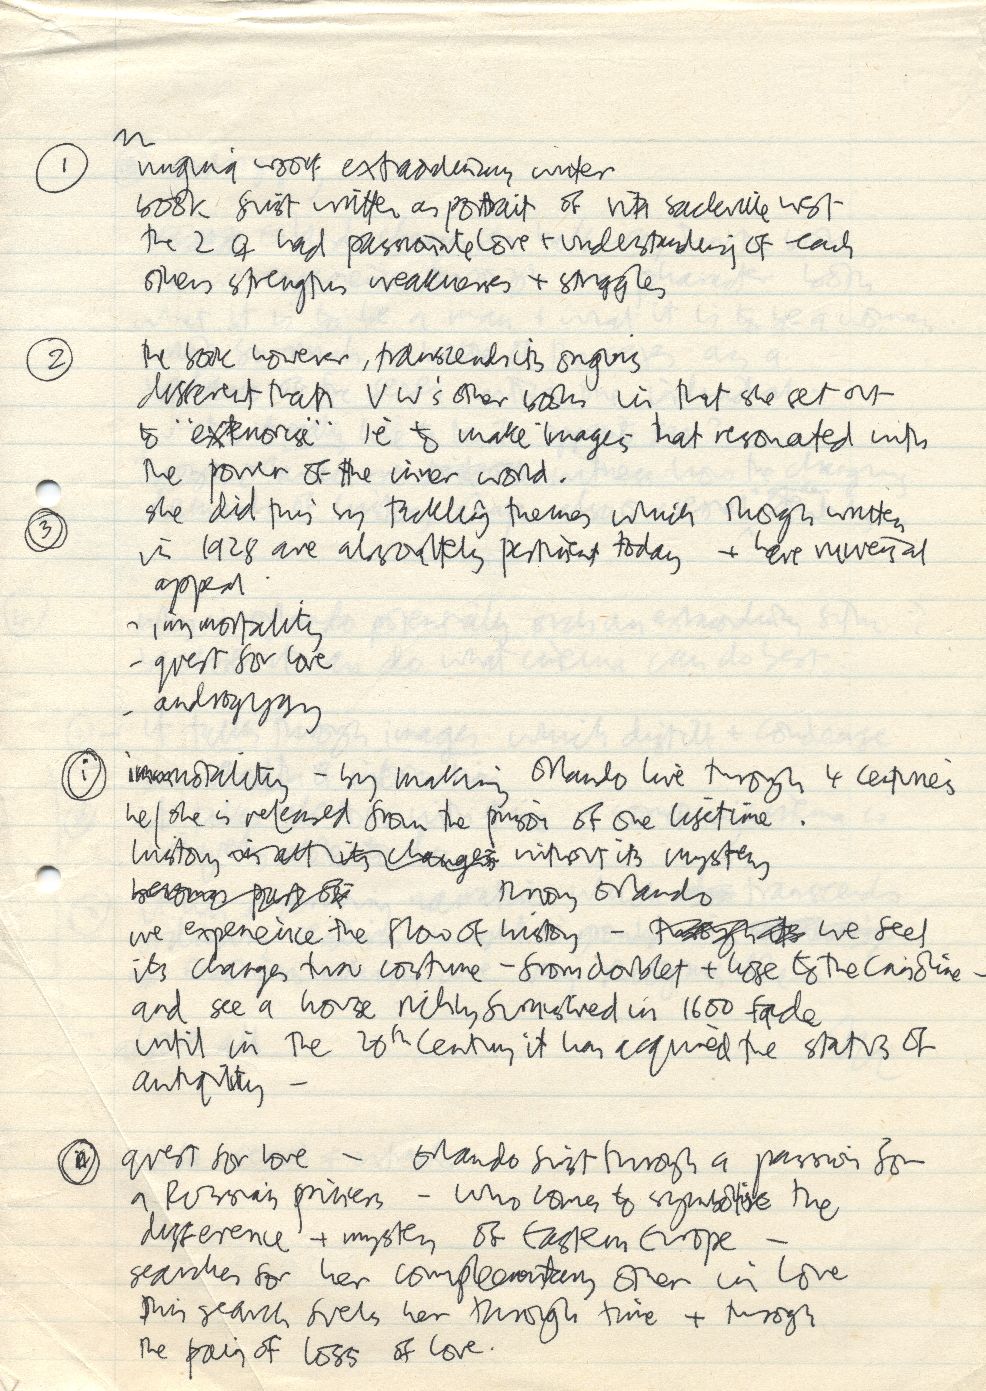 ①
virginia woolf extraordinary writer
book first written as portrait of vita sackville west
the 2 ♀ had passionate love + understanding of each
others strengths weaknesses + struggles
② the book however, transcends its origins
different than VW's other books in that she set out
to "exteriorise" ie to make images that resonated with
the power of the inner world.
③ she did this by tackling themes which though written
in 1928 are absolutely pertinent today + have universal
appeal.
- immortality
- quest for love
- androgyny
ⓘ immortality - by making Orlando live through 4 centuries
he/she is released from the prison of one lifetime.
history is all its changes without its mystery
becomes part of throug Orlando
we experience the flow of history - through its we feel
its changes thro costume - from doublet + hose to the Crinoline -
and see a house richly furnished in 1600 fade
until in the 20th Century it has acquired the status of
antiquity -
quest for love - Orlando first through a passion for
a Russian princess - who comes to symbolise the
difference + mystery of Eastern Europe -
searches for her complementary other in love
This search fuels her through time + through
the pain of loss of love.